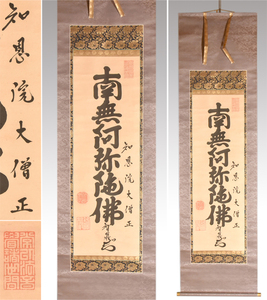 知恩院大僧正
南無阿弥陀佛
知恩院大僧正
南無阿弥陀佛
知恩院大僧正